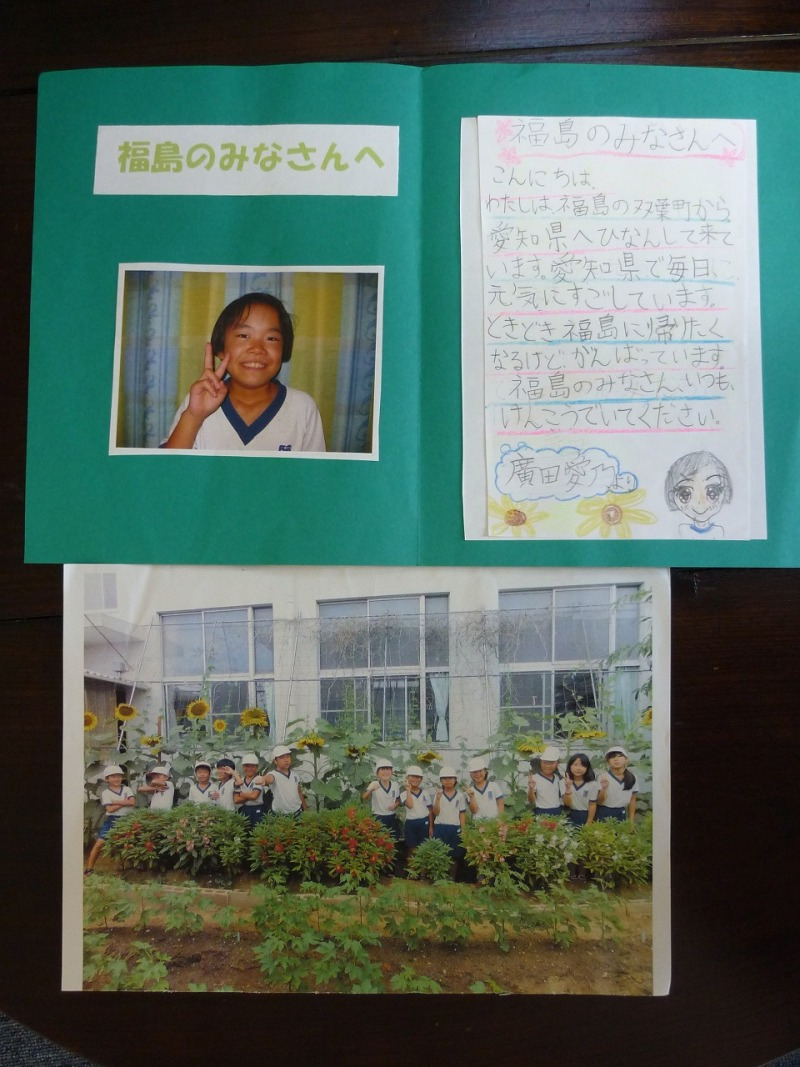 福島のみなさんへ
福島のみなさんへ
こんにちは、
わたしは、福島の双葉町から
愛知県へひなんして来て
います。愛知県で毎日、
元気にすごしています。
ときどき福島に帰りたく
なるけど、がんばっています。
福島のみなさん、いつも、
けんこうでいてください。
廣田愛乃より